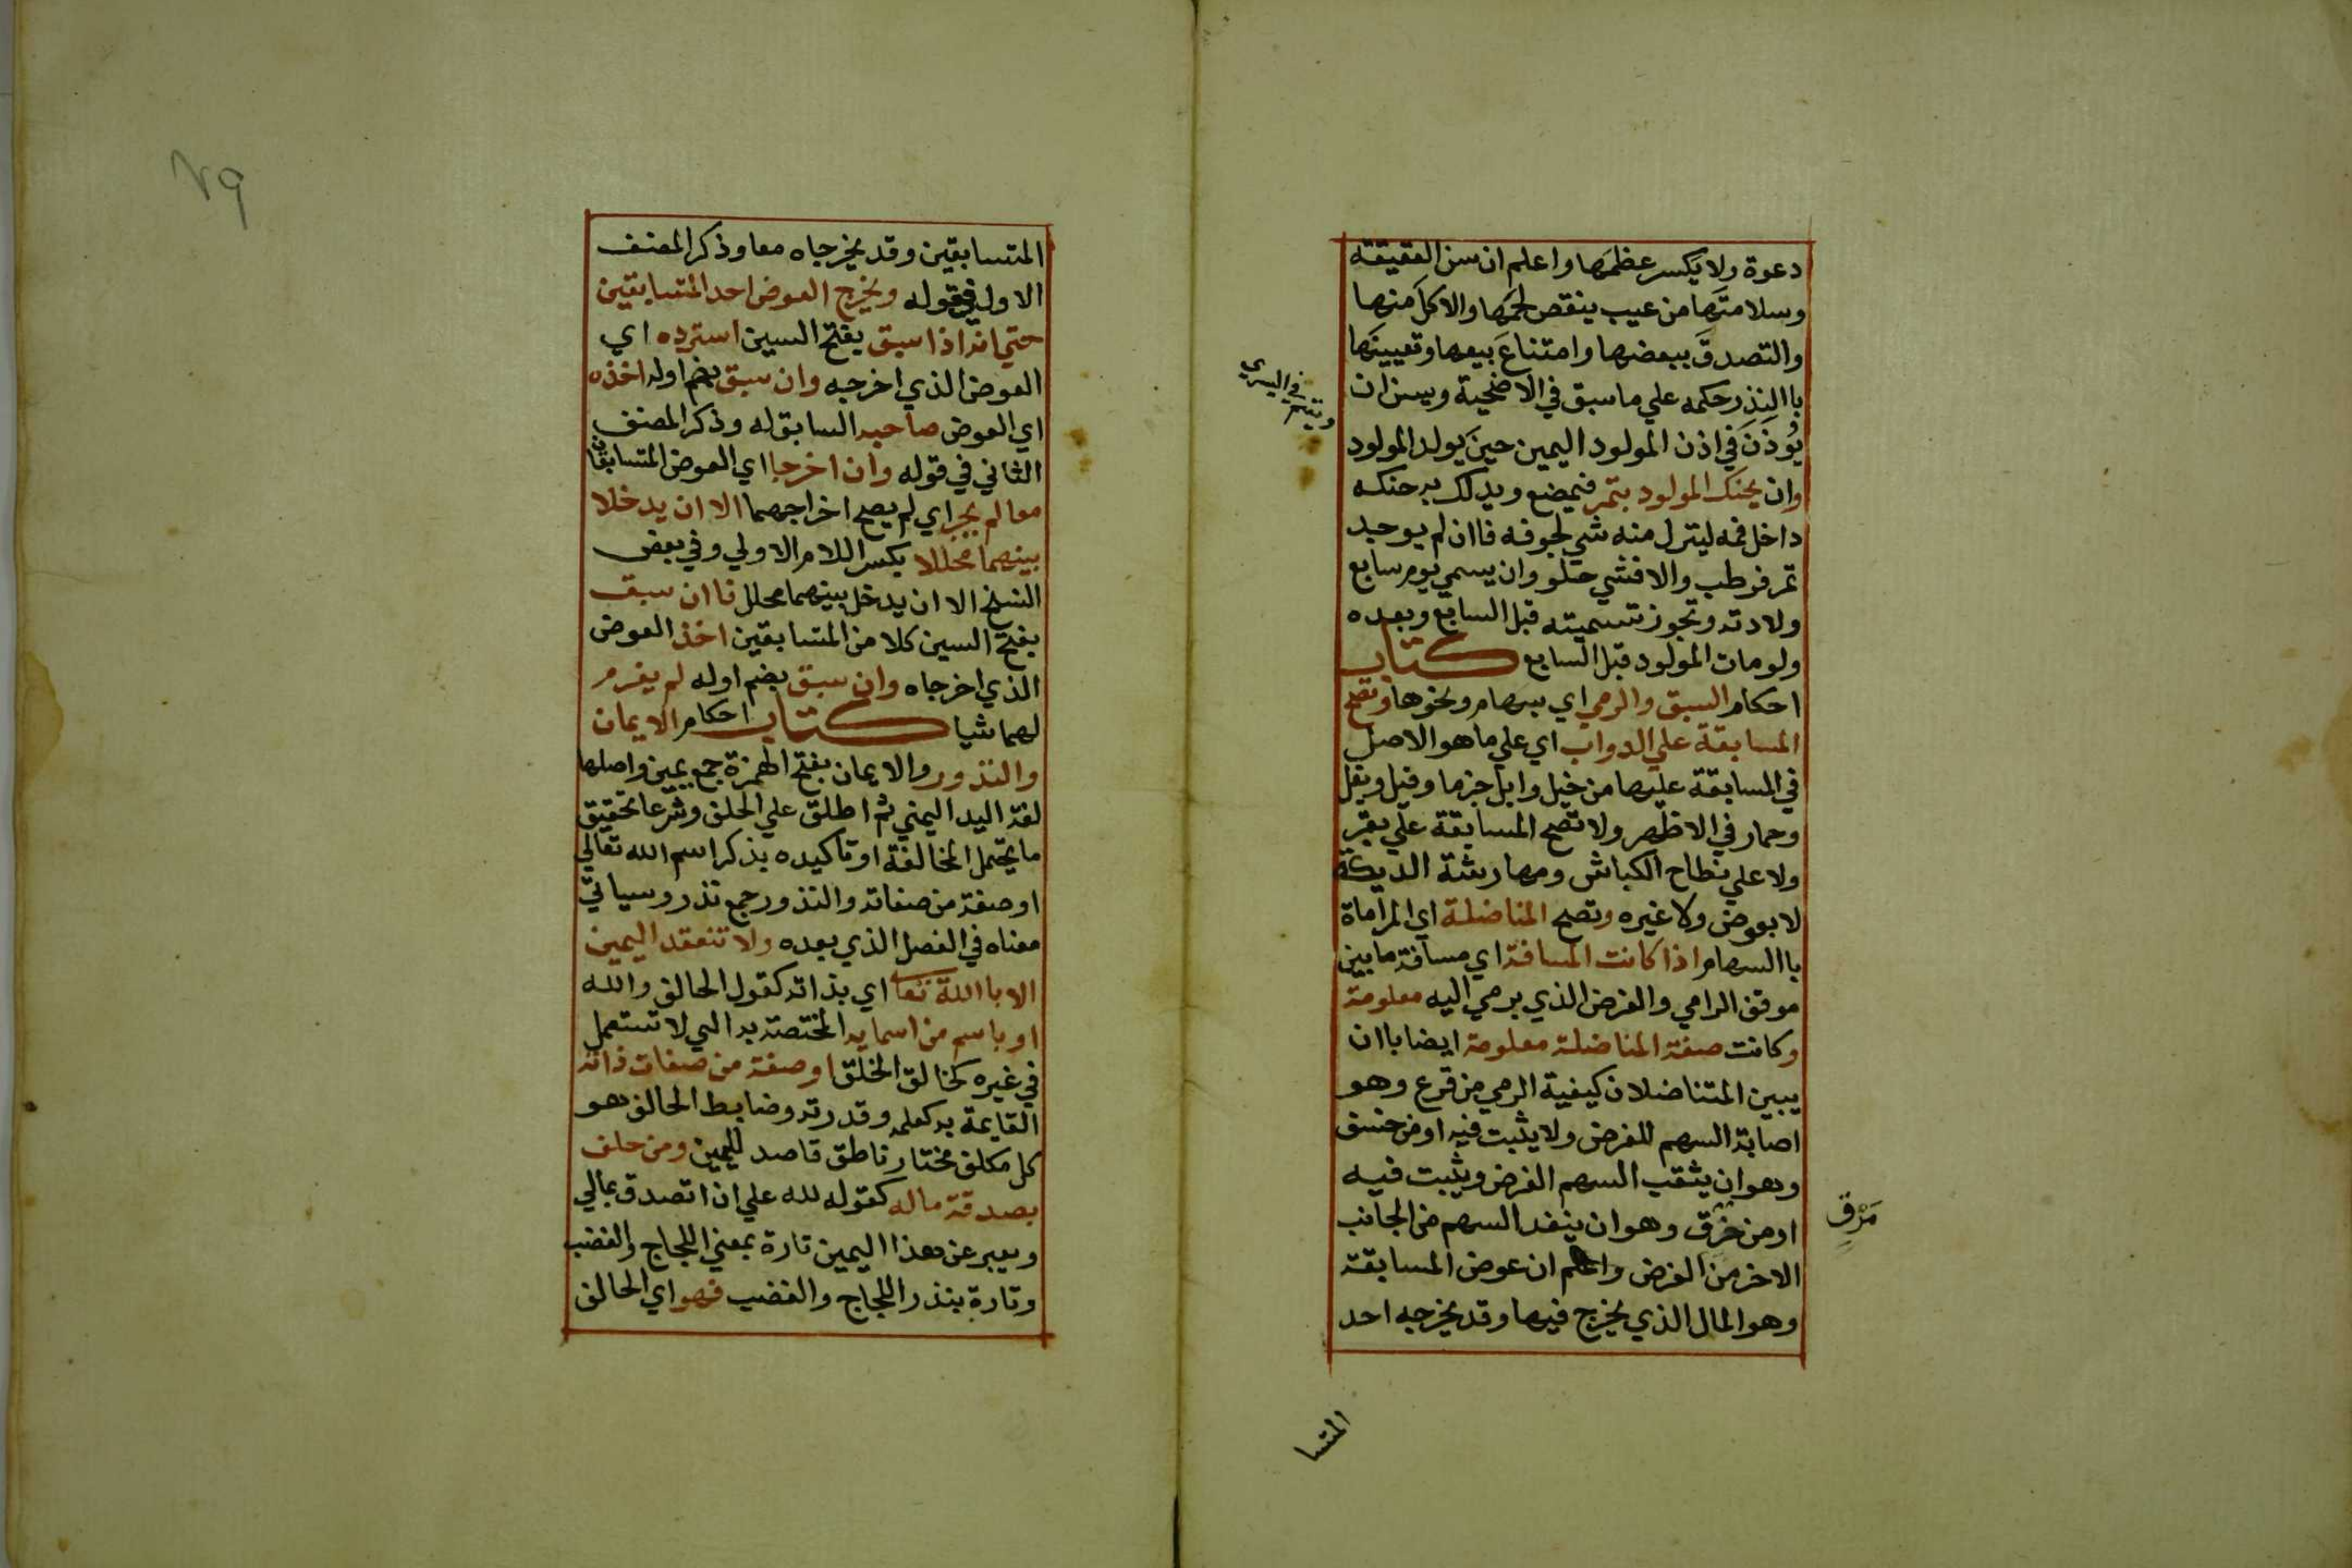 دعوة ولا يكسر عظمها واعلم ان سن العقيقة
وسلامتها من عيب ينقص لحمها والاكل منها
والتصدق ببعضها وامتناع بيعها وتعيينها
باالنذر حكمه علي ما سبق في الاضحية ويسن ان
يُوذَنَ في اذن المولود اليمين حين يولد المولود
ويقيم في اليسري
وان يحنك المولود بتمر فيمضع ويدلك به حنكه
داخل فمه لينزل منه شي لجوفه فاان لم يوجد
تمر فرطب والا فشي حلو وان يسمي يوم سابع
ولادته وتجوز تسميته قبل السابع وبعده
ولو مات المولود قبل السابع كتاب
احكام السبق والرمي اي بسهام ونحوها وتصح
المسابقة علي الدواب اي علي ما هو الاصل
في المسابقة عليها من خيل وابل جزما وفيل وبغل
وحمار في الاظهر ولا تصح المسابقة علي بقر
ولا علي نطاح الكباش ومهارشة الديكة
لا بعوض ولا غيره وتصح المناضلة اي المراماة
باالسهام اذا كانت المسافة اي مسافة ما بين
موقف الرامي والغرض الذي يرمي اليه معلومة
وكانت صفة المناضلة معلومة ايضا باان
يبين المتناضلان كيفية الرمي من قرع وهو
اصابة السهم للغرض ولا يثبت فيه او من خسق
وهو ان يثقب السهم الغرض ويثبت فيه
او من خرق وهو ان ينفد السهم من الجانب
مَرْقٍ
الاخر من الغرض واعلم ان عوض المسابقة
وهو المال الذي يخرج فيها وقد يخرجه احد
المتسا
٧٩
المتسابقين وقد يخرجاه معا وذكر المصنف
الاول في قوله ويخرج العوض احد المتسابقين
حتي انه اذا سبق بفتح السين استرده اي
العوض الذي اخرجه وان سبق بضم اوله اخذه
اي العوض صاحبه السابق له وذكر المصنف
الثاني في قوله وان اخرجا اي العوض المتسابقان
معا لم يجز اي لم يصح اخراجهما الا ان يدخلا
بينهما محللا بكسر اللام الاولي وفي بعض
النسخ الا ان يدخل بينهما محلل فاان سبق
بفتح السين كلا من المتسابقين اخذ العوض
الذي اخرجاه وان سبق بضم اوله لم يغرم
لهما شيا كتاب احكام الايمان
والنذور والايمان بفتح الهمزة جمع يمين واصلها
لغة اليد اليمني ثم اطلق علي الحلف وشرعا تحقيق
ما يحتمل المخالفة او تاكيده بذكر اسم الله تعالي
او صفة من صفاته والنذور جمع نذر وسياتي
معناه في الفصل الذي بعده ولا تنعقد اليمين
الا باالله تعا اي بذاته كقول الحالف والله
او باسم من اسمايه المختصة به التي لا تستعمل
في غيره كخالق الخلق او صفة من صفات ذاته
القايمة به كعلمه وقدرته وضابط الحالف هو
كل مكلف مختار ناطق قاصد لليمين ومن حلف
بصدقة ماله كقوله لله علي ان اتصدق بمالي
ويعبر عن هذا اليمين تارة بمعني اللجاج والغضب
وتارة بنذر اللجاج والغضب فهو اي الحالف